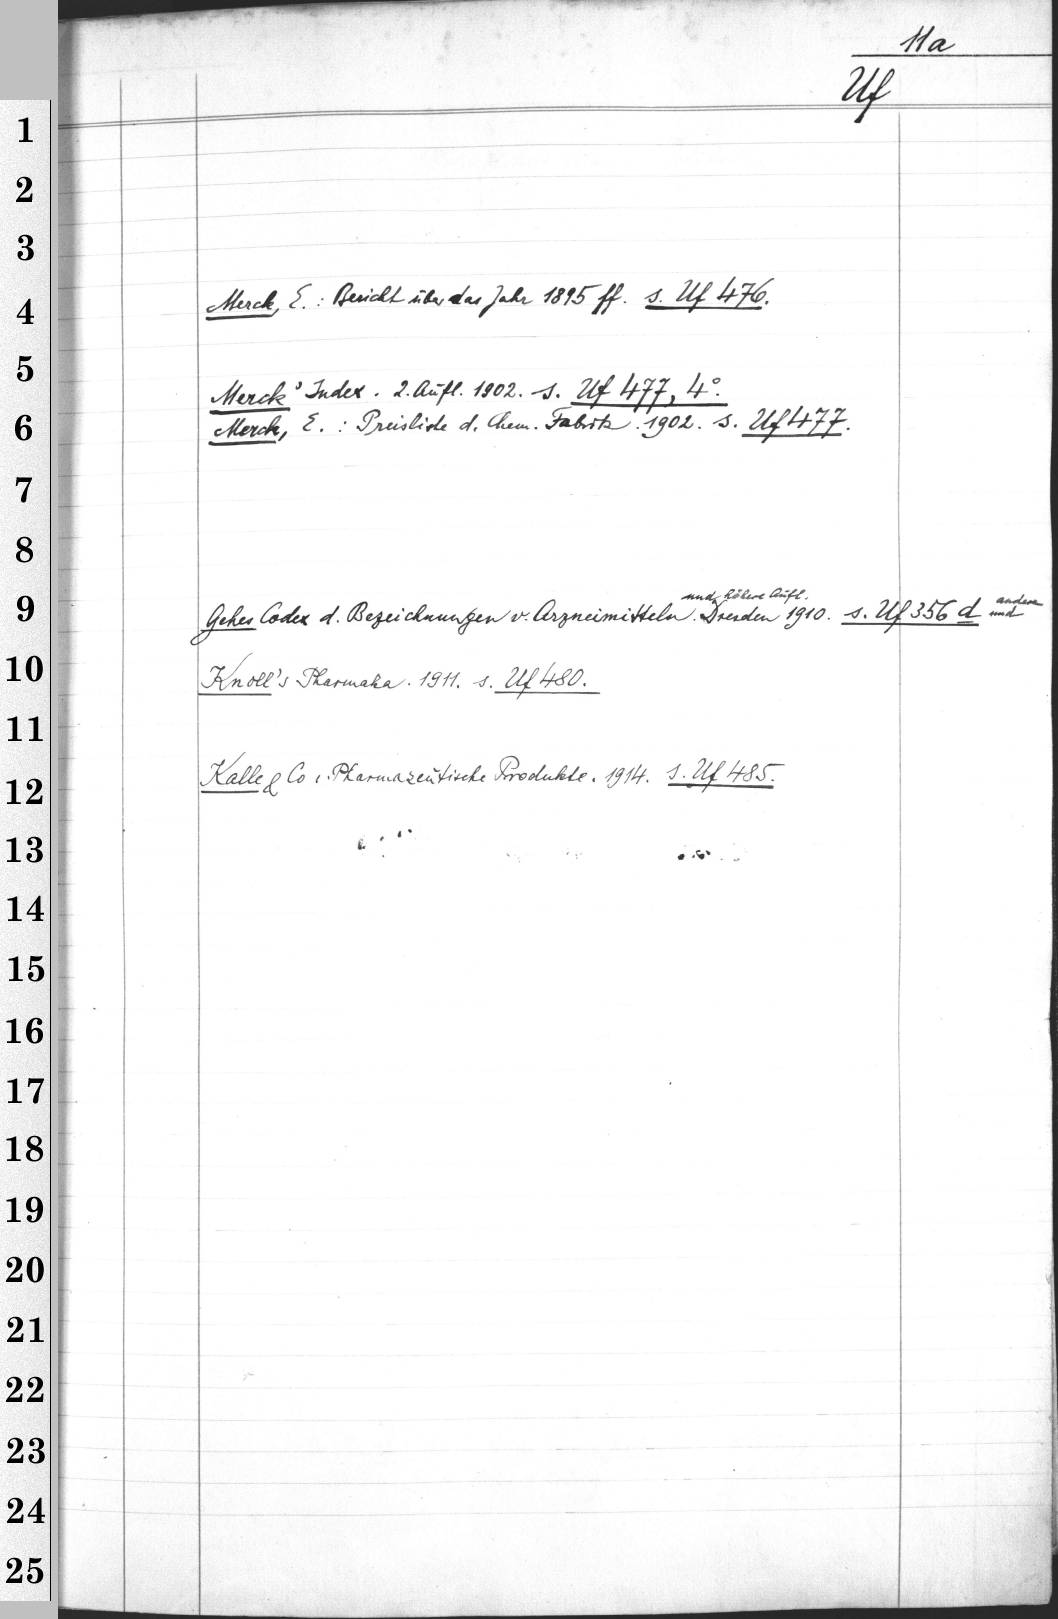 11a
Uf
1
2
3
4 Merck, E.: Bericht über das Jahr 1895 ff. s. Uf 476.
5
Merck's Index. 2. Aufl. 1902. s. Uf 477, 4°.
6 Merck, E.: Preisliste d. Chem. Fabrik. 1902. s. Uf 477.
7
8
und höhere Aufl.
9 Gehes Codex d. Bezeichnungen v. Arzneimitteln. Dresden 1910. s. Uf 356 d und andere
10 Knoll's Pharmaka. 1911. s. Uf 480.
11
12 Kalle & Co: Pharmazeütische Produkte. 1914. s. Uf 485.
13
14
15
16
17
18
19
20
21
22
23
24
25